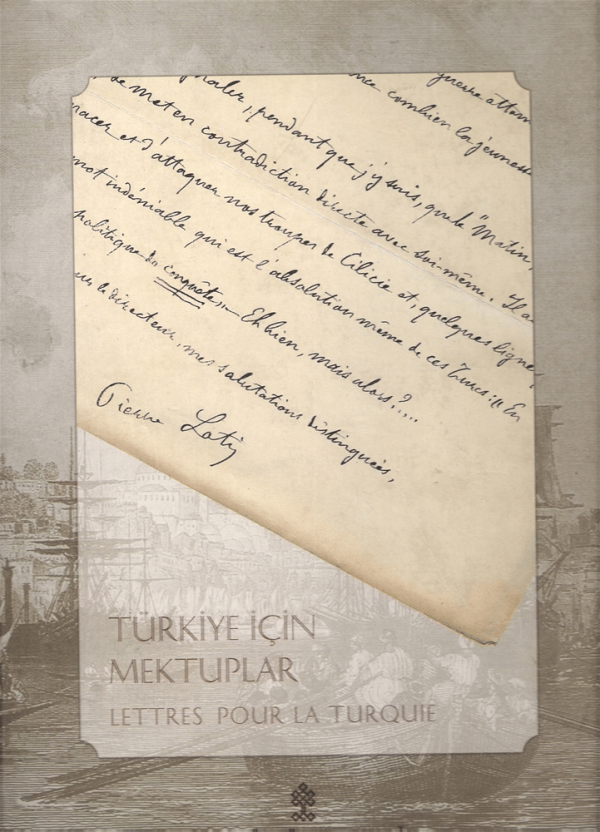 guerre attom
nce combien la jeunesse
naler, pendant que j'y suis, que le "Matin,
se met en contradiction directe avec soi-même. Il a
nacer et d'attaquer nos troupes de Cilicie et, quelques lignes
mot indéniable qui est l'absolution même de ces Turcs : "En
politique de conquête," — Eh bien, mais alors ?....
le directeur, mes salutations distinguées,
Pierre Loti
TÜRKİYE İÇİN
MEKTUPLAR
LETTRES POUR LA TURQUIE